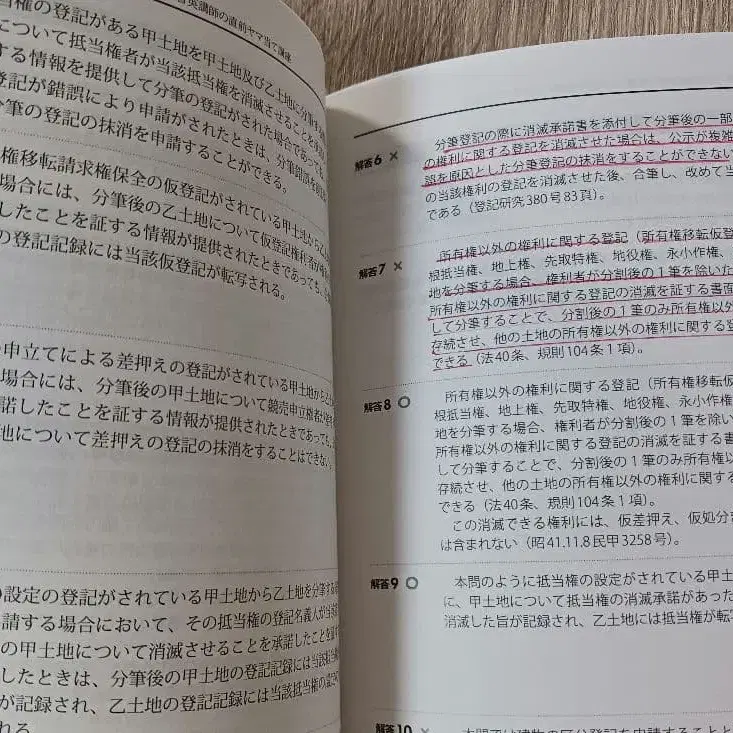 英講師の直前ヤマ当て講座
当権の登記がある甲土地を甲土地及び乙土地に分筆する
について抵当権者が当該抵当権を消滅させることを承諾
する情報を提供して分筆の登記がされた場合であっても
登記が錯誤により申請がされたときは、分筆錯誤を
分筆の登記の抹消を申請することができる。
権移転請求権保全の仮登記がされている甲土地から乙土
場合には、分筆後の乙土地について仮登記権利者が
したことを証する情報が提供されたときであっても、
の登記記録には当該仮登記が転写される。
の申立てによる差押えの登記がされている甲土地から乙
場合には、分筆後の甲土地について競売申立権者が
諾したことを証する情報が提供されたときであっても、
地について差押えの登記の抹消をすることはできない。
の設定の登記がされている甲土地から乙土地を分筆する
請する場合において、その抵当権の登記名義人が当該
の甲土地について消滅させることを承諾したことを証す
したときは、分筆後の甲土地の登記記録には当該抵当権
が記録され、乙土地の登記記録には当該抵当権の
れる。
解答6 ×
分筆登記の際に消滅承諾書を添付して分筆後の一部
の権利に関する登記を消滅させた場合は、公示が複雑
誤を原因とした分筆登記の抹消をすることができない
の当該権利の登記を消滅させた後、合筆し、改めて当
である（登記研究380号83頁）。
解答7 ×
所有権以外の権利に関する登記（所有権移転仮登
根抵当権、地上権、先取特権、地役権、永小作権、
地を分筆する場合、権利者が分割後の1筆を除いた
所有権以外の権利に関する登記の消滅を証する書面
して分筆することで、分割後の1筆のみ所有権以外
存続させ、他の土地の所有権以外の権利に関する登
できる（法40条、規則104条1項）。
解答8 ○
所有権以外の権利に関する登記（所有権移転仮
根抵当権、地上権、先取特権、地役権、永小作権
地を分筆する場合、権利者が分割後の1筆を除い
所有権以外の権利に関する登記の消滅を証する書
して分筆することで、分割後の1筆のみ所有権以
存続させ、他の土地の所有権以外の権利に関する
できる（法40条、規則104条1項）。
この消滅できる権利には、仮差押え、仮処分
は含まれない（昭41.11.8民甲3258号）。
解答9 ○
本問のように抵当権の設定がされている甲土
に、甲土地について抵当権の消滅承諾があった
消滅した旨が記録され、乙土地には抵当権が転写
解答10 ×
本問では建物の区分登記を申請すること